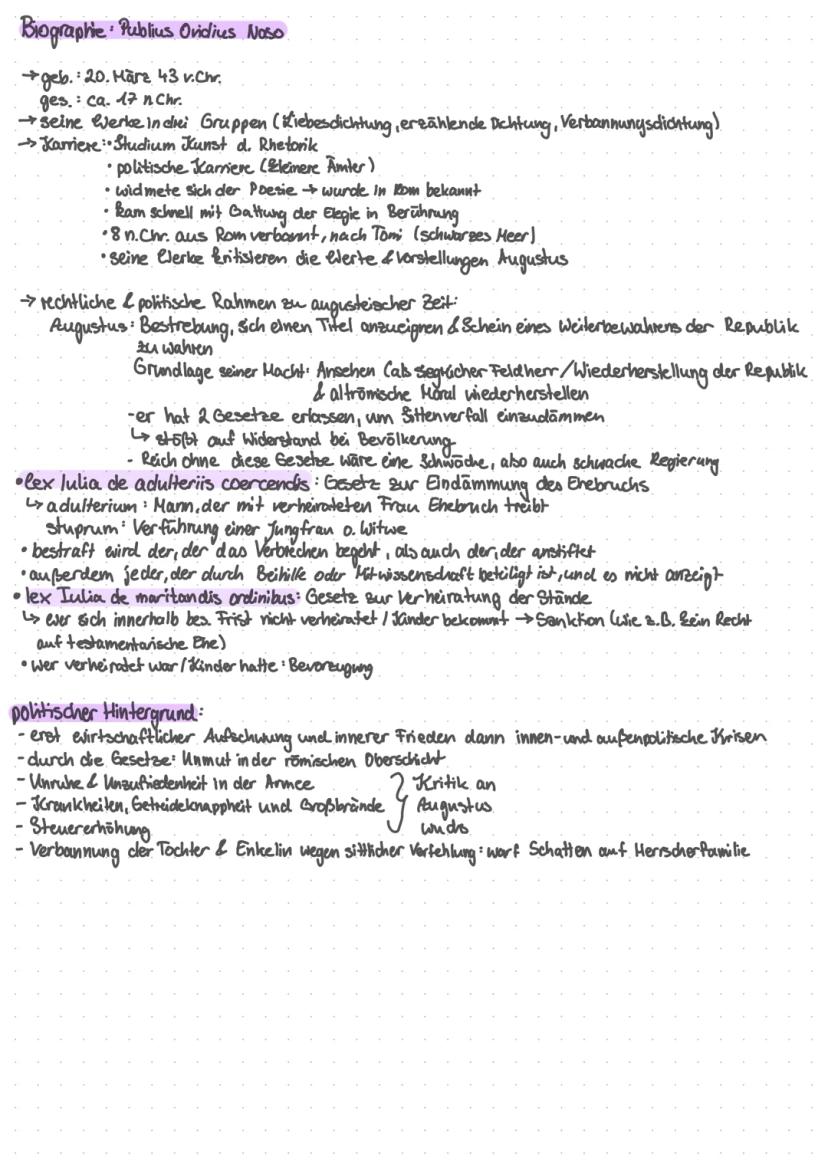 Biographie: Publius Ovidius Naso
→ geb.: 20. März 43 v.Chr.
ges.: ca. 17 n Chr.
→ seine Werke in drei Gruppen (Liebesdichtung, erzählende Dichtung, Verbannungsdichtung)
→ Karriere: • Studium Kunst d. Rhetorik
• politische Karriere (kleinere Ämter)
• widmete sich der Poesie → wurde in Rom bekannt
• kam schnell mit Gattung der Elegie in Berührung
• 8 n.Chr. aus Rom verbannt, nach Tomi (schwarzes Meer)
• seine Werke kritisieren die Werte & Vorstellungen Augustus
→ rechtliche & politische Rahmen zu augusteischer Zeit:
Augustus: Bestrebung, sich einen Titel anzueignen & Schein eines Weiterbewahrens der Republik
zu wahren
Grundlage seiner Macht: Ansehen (als siegreicher Feldherr/Wiederherstellung der Republik
& altrömische Moral wiederherstellen
- er hat 2 Gesetze erlassen, um Sittenverfall einzudämmen
↳ stößt auf Widerstand bei Bevölkerung
- Reich ohne diese Gesetze wäre eine Schwäche, also auch schwache Regierung
• lex Iulia de adulteriis coercendis: Gesetz zur Eindämmung des Ehebruchs
↳ adulterium: Mann, der mit verheirateten Frau Ehebruch treibt
stuprum: Verführung einer Jungfrau o. Witwe
• bestraft wird der, der das Verbrechen begeht, als auch der, der anstiftet
• außerdem jeder, der durch Beihilfe oder Mitwissenschaft beteiligt ist, und es nicht anzeigt
• lex Iulia de maritandis ordinibus: Gesetz zur Verheiratung der Stände
↳ wer sich innerhalb bes. Frist nicht verheiratet / Kinder bekommt → Sanktion (wie z.B. kein Recht
auf testamentarische Ehe)
• wer verheiratet war / Kinder hatte: Bevorzugung
politischer Hintergrund:
- erst wirtschaftlicher Aufschwung und innerer Frieden dann innen- und außenpolitische Krisen
- durch die Gesetze: Unmut in der römischen Oberschicht
- Unruhe & Unzufriedenheit in der Armee } Kritik an
- Krankheiten, Getreideknappheit und Großbrände Augustus
- Steuererhöhung wuchs
- Verbannung der Tochter & Enkelin wegen sittlicher Verfehlung: warf Schatten auf Herrscherfamilie